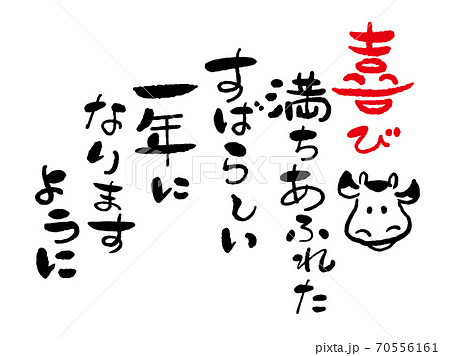 喜び
満ちあふれた
すばらしい
一年に
なります
ように
PIXTA
pixta.jp - 70556161